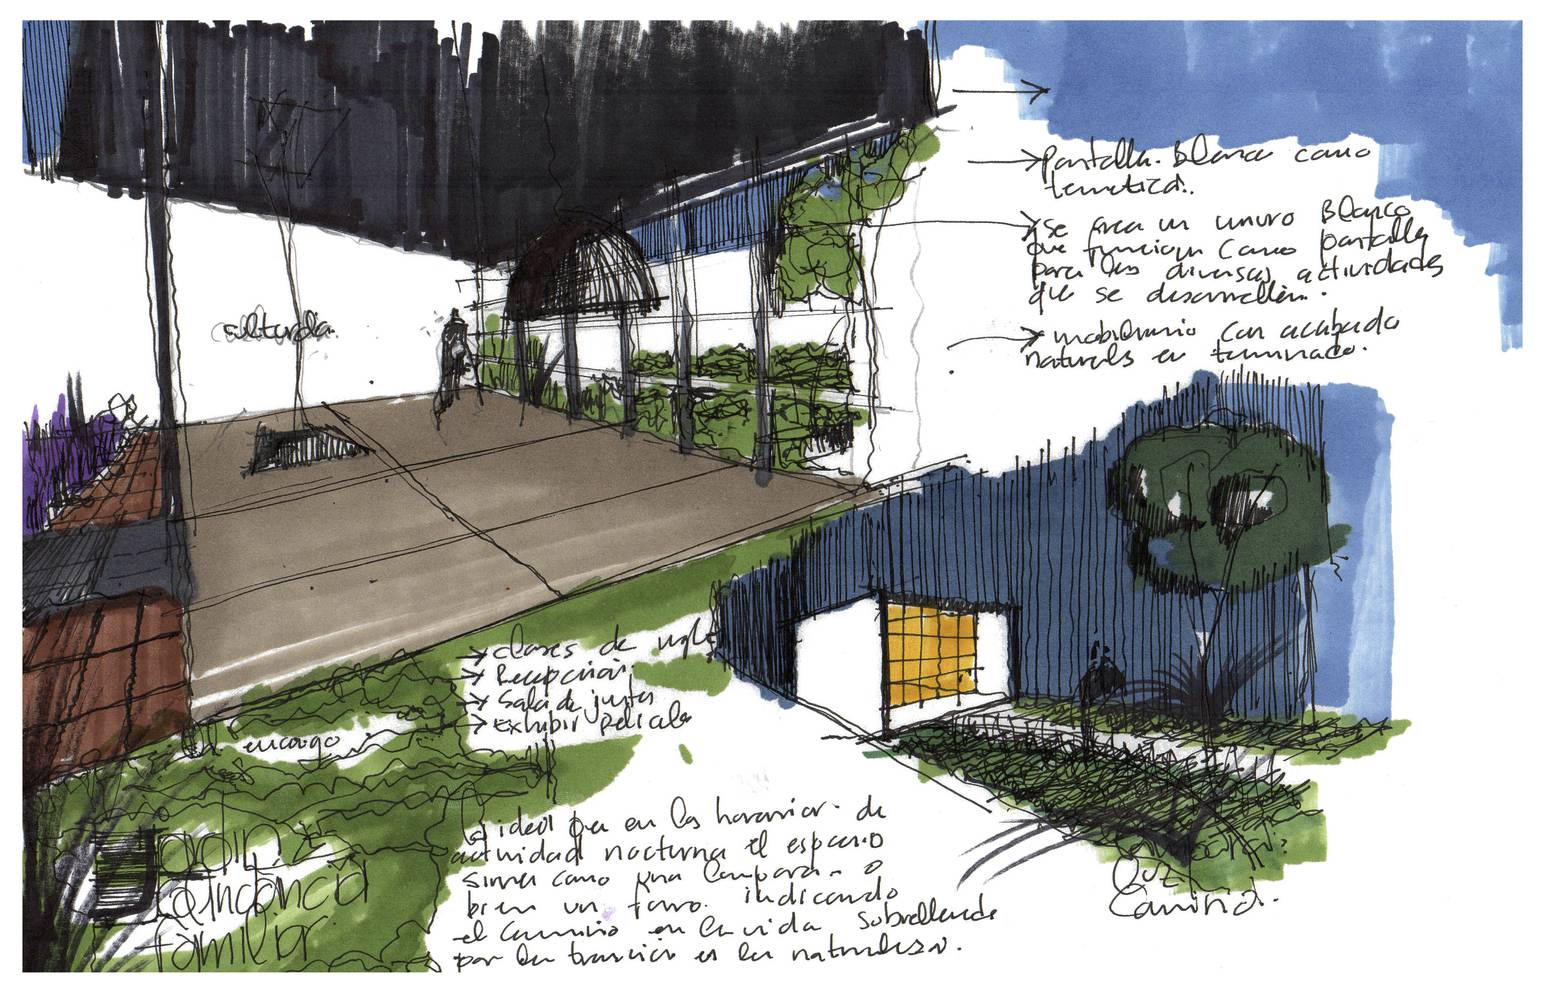 pantalla Blanco como
tematica.
se crea un muro Blanco
que funcion como pantalla
para las diversas actividades
que se desarrollen.
mobiliario con acabado
naturales en terminado.
clases de
Recepcion.
Sala de juntas
Exhibir pelicula
encargo
Jardin
infancia
familia
la ideal que en los horarios de
actividad nocturna el espacio
sirva como una lampara o
bien un faro. indicando
el camino en la vida
por la es la naturaleza.
Luz
Camina.